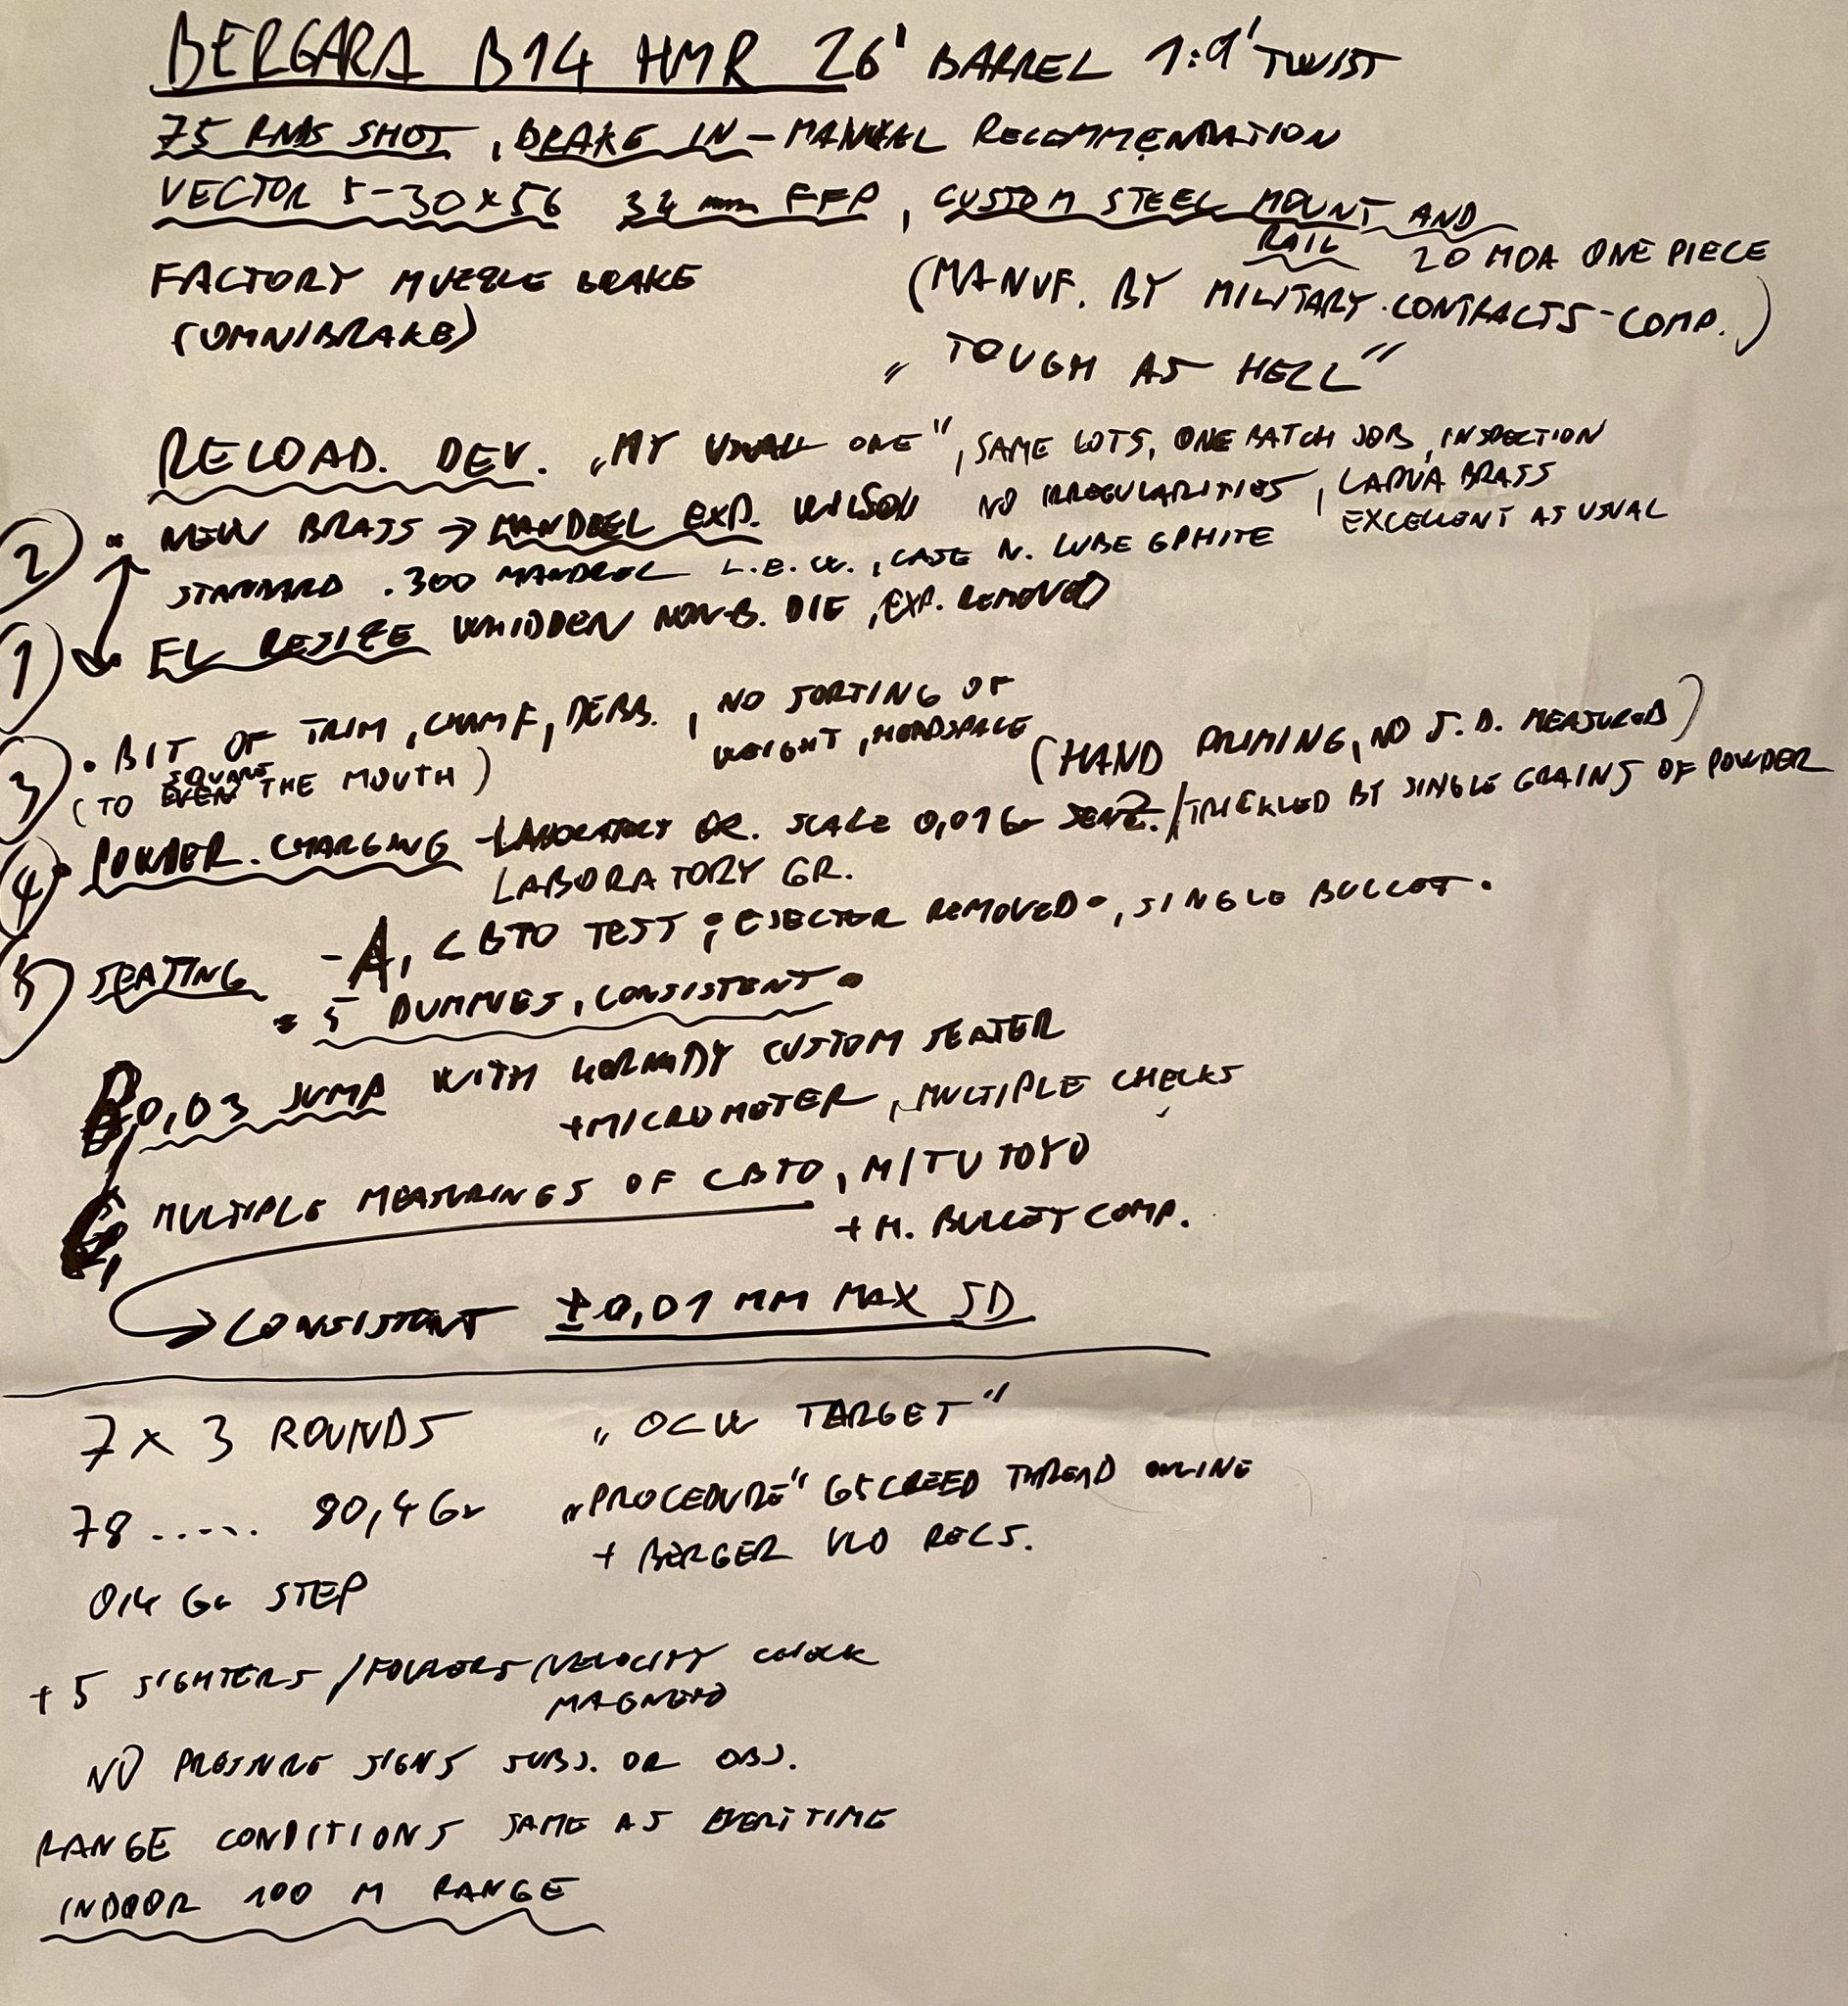 BERGARA B14 HMR 26' BARREL 1:9' TWIST
75 RNDS SHOT, BRAKE IN - MANUAL RECOMMENDATION
VECTOR 5-30x56 34 mm FFP, CUSTOM STEEL MOUNT AND
RAIL 20 MOA ONE PIECE
FACTORY MUZZLE BRAKE (MANUF. BY MILITARY-CONTRACTS-COMP.)
(OMNIBRAKE)
„TOUGH AS HELL"
RELOAD. DEV. „MY USUAL ONE", SAME LOTS, ONE BATCH JOB, INSPECTION
2) • NEW BRASS → MANDREL EXP. WILSON NO IRREGULARITIES, LAPUA BRASS
EXCELLENT AS USUAL
STANDARD .300 MANDREL L.E.W., CASE N. LUBE GPHITE
1) • FL RESIZE WHIDDEN NON-B. DIE, EXP. REMOVED
3) • BIT OF TRIM, CHAMF, DEBB., NO SORTING OF
WEIGHT, HEADSPACE
(TO SQUARE THE MOUTH)
(HAND PRIMING, NO S.D. MEASURED)
4) • POWDER CHARGING - LABORATORY GR. SCALE 0,01 Gr /TRICKLED BY SINGLE GRAINS OF POWDER
LABORATORY GR.
5) SEATING - A, CBTO TEST; EJECTER REMOVED, SINGLE BULLET.
= 5 DUMMIES, CONSISTENT.
B, 0,03 JUMP WITH HORNADY CUSTOM SEATER
+MICROMETER, MULTIPLE CHECKS
C, MULTIPLE MEASURINGS OF CBTO, MITUTOYO
+ H. BULLET COMP.
→ CONSISTENT ±0,01 MM MAX SD
7 x 3 ROUNDS „OCW TARGET"
78 ..... 80,4 Gr „PROCEDURE" 65CREED THREAD ONLINE
+ BERGER VLD RECS.
0,4 Gr STEP
+ 5 SIGHTERS /FOULERS/VELOCITY CHECK
MAGNETO
NO PRESSURE SIGNS SUBJ. OR OBJ.
RANGE CONDITIONS SAME AS EVERITIME
INDOOR 100 M RANGE